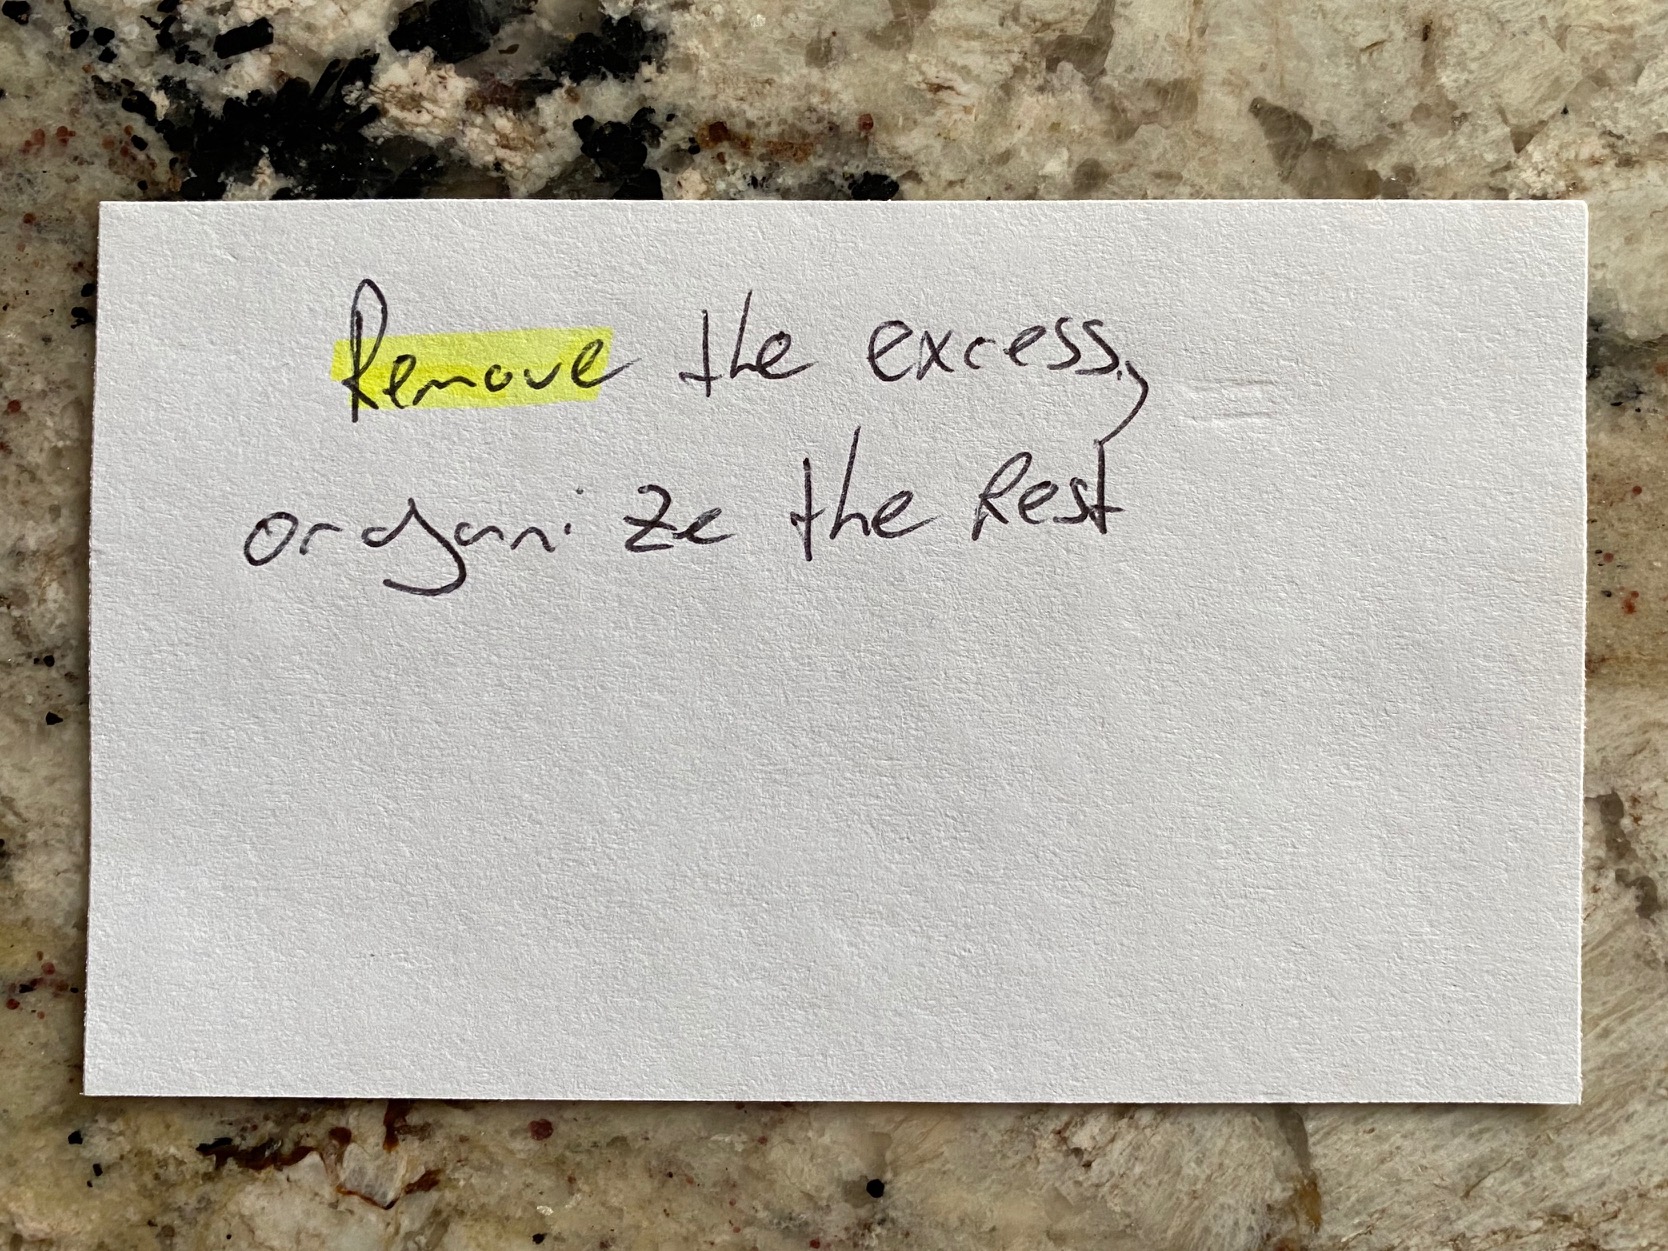 Remove the excess,
organize the Rest